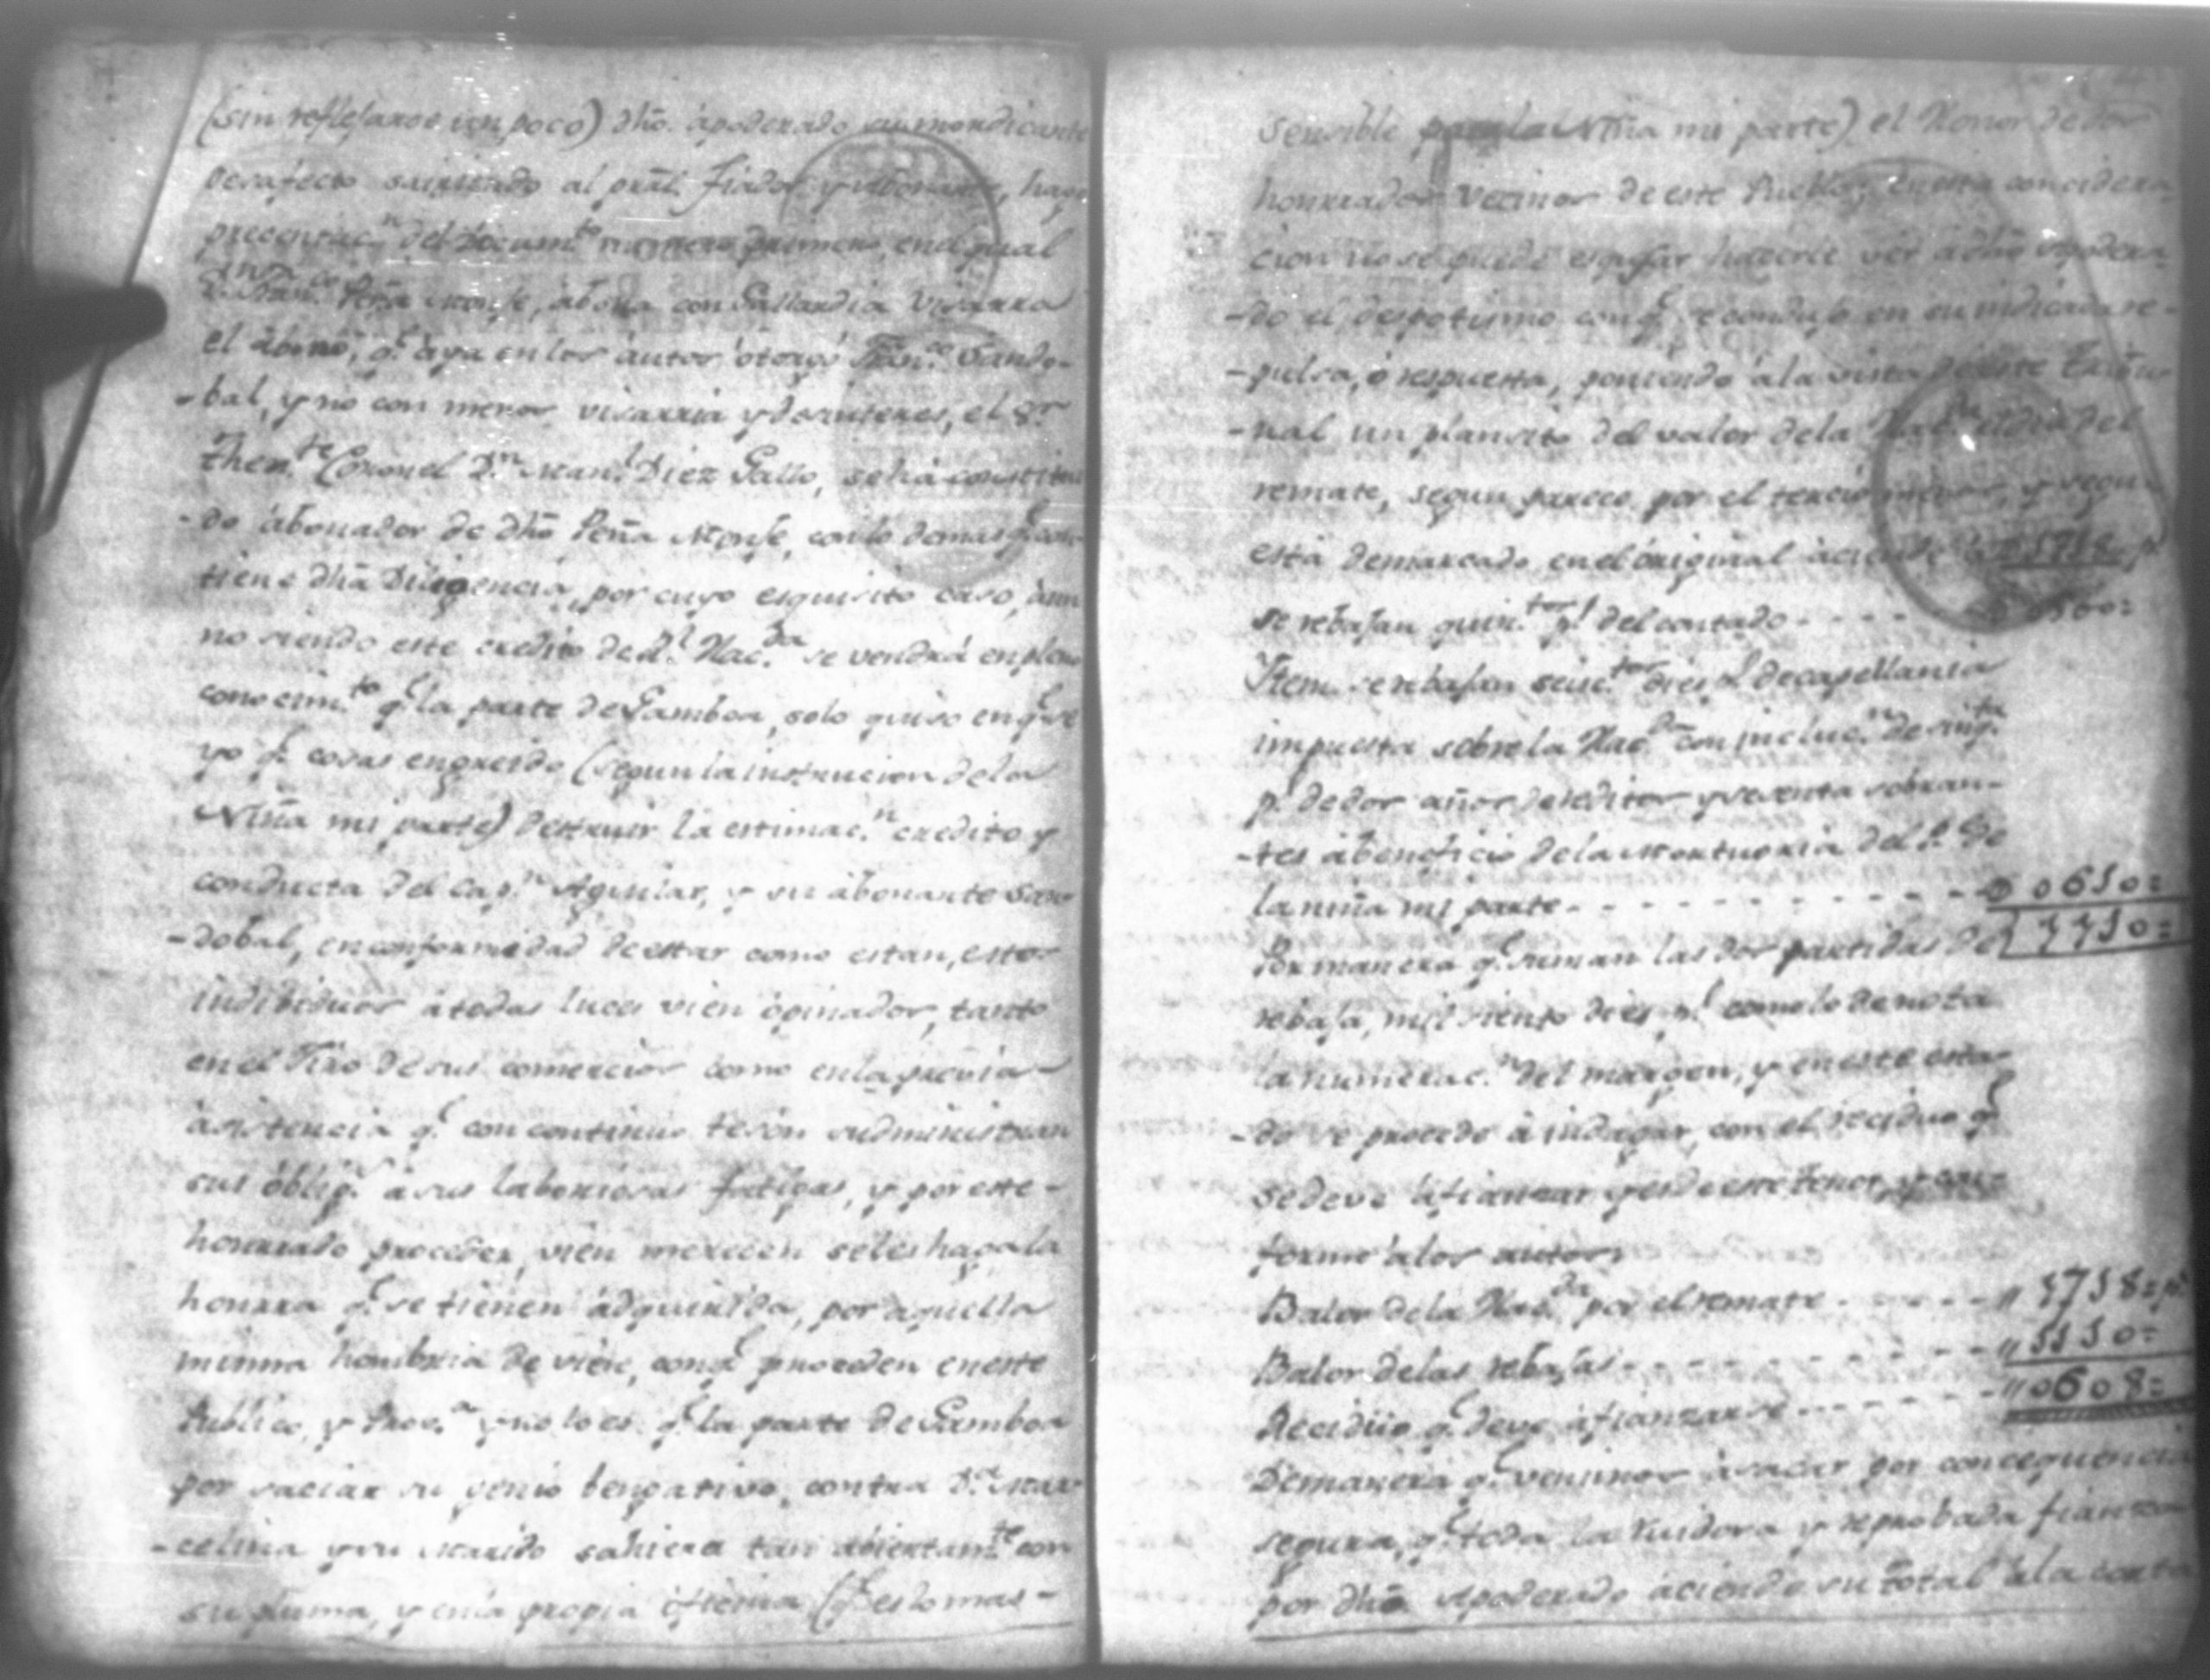 (sin reflejarse un poco) dho. apoderado su mordicante
desafecto al pral. fiador y abonante, hago
precentac.n del Docum.to numero primero, en el qual
D.n Fran.co Peña Monje, abona con Gallardia visarra
el abono, q.e aya en los autos otorgó Fran.co Sando-
-bal, y no con menor visarria y desinteres, el S.r
Then.te Coronel D.n Man.l Diez Gallo, se ha constitui
-do abonador de dho Peña Monje, con lo demas q.e con-
tiene dha Diligencia, por cuyo esquisito caso, aun
no siendo este credito de R.l Hac.da se vendrá en pleno
conocim.to q.e la parte de Gamboa, solo quiso en q.e se
yo q.e cosas engreido (segun la instrucion de la
Niña mi parte) destruir la estimac.n credito y
conducta del Cap.n Aguilar, y su abonante San-
-dobal, en conformidad de estar como estan, estos
individuos a todas luces vien opinados, tanto
en el Jiro de sus comercios como en la precia-
asistencia q.e con continuo teson sudministran
sus oblig.s a sus laboriosas fatigas, y por este-
honrrado proceder, vien merecen se les haga la
honrra q.e se tienen adquirida, por aquella
misma hombria de vien, con q.e proceden en este
Publico, y no lo es q.e la parte de Gamboa
por saciar su genio bengativo, contra D.a Mar-
-celina y su Marido sahiera tan abiertam.te con
su pluma, y en la propia (q.e es lo mas-
sensible para la Niña mi parte) el Honor de dos
honrrados Vecinos de este Pueblo, en esta concidera-
cion no se puede esqusar hacerle ver a dho apodera-
-do el despotismo con q.e se condujo en su indicada re-
-pulsa, ó respuesta, poniendo a la vista de este Tribu-
-nal un plancito del valor de la Hac.da el dia del
remate, segun parece por el tercio y segun
está demarcado en el original aciende a 1718 p.s
se rebajan quin.tos p.s del contado - - - - 0500=
Item. se rebajan seisc.tos dies p.s de capellania
impuesta sobre la Hac.da con incluc.n de
p.s de dos años de reditos y sesenta sobran-
-tes a beneficio de la Mortuoria del P.e de
la niña mi parte - - - - - - - - - 0610=
Por manera q.e suman las dos partidas de 1110=
rebaja, mil siento dies p.s como lo denota
la numerac.n del margen, y en este esta-
-do se procede a indagar, con el reciduo q.e
se deve afianzar y es de este tenor, y con-
forme a los autos,
Balor de la Hac.da por el remate - - - - - 1718=p.s
Balor de las rebajas - - - - - - - - - 1110=
Reciduo q.e deve afianzarse - - - - - - 0608=
Demanera q.e venimos a sacar por concequencia
segura, q.e toda la ruidosa y reprobada fianza
por dho. Apoderado aciende su total a la corta